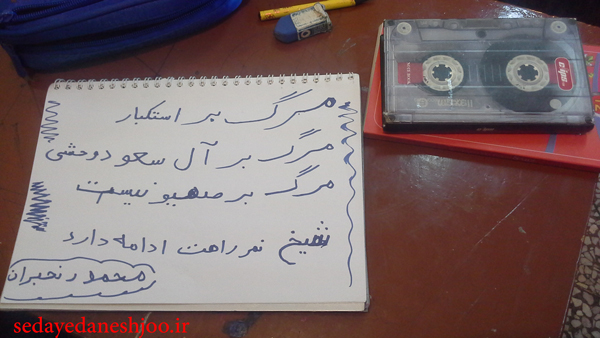 مرگ بر استکبار
مرگ بر آل سعود وحشی
مرگ بر صهیونیست
شیخ نمر راهت ادامه دارد
محمد رنجبران
sedayedaneshjoo.ir